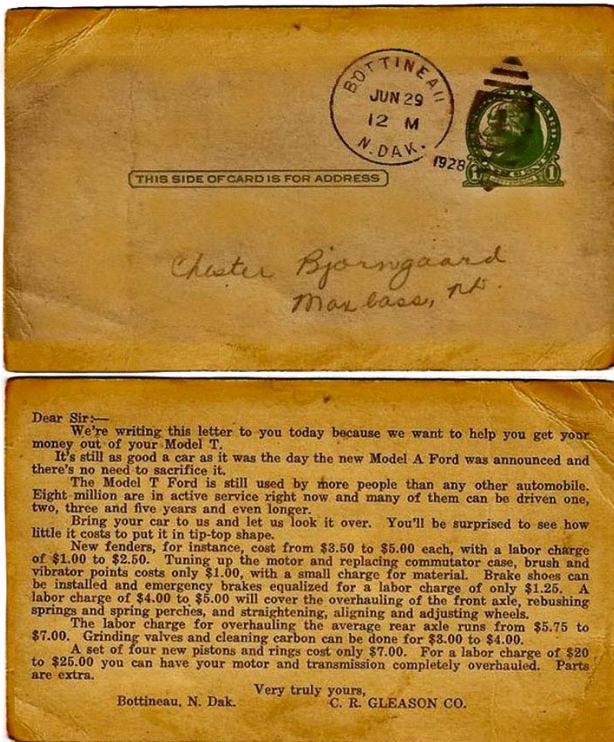 BOTTINEAU
JUN 29
12 M
N. DAK.
1928
THIS SIDE OF CARD IS FOR ADDRESS
1 1
Chester Bjorngaard
Maxbass, nd.
Dear Sir:—
We're writing this letter to you today because we want to help you get your
money out of your Model T.
It's still as good a car as it was the day the new Model A Ford was announced and
there's no need to sacrifice it.
The Model T Ford is still used by more people than any other automobile.
Eight million are in active service right now and many of them can be driven one,
two, three and five years and even longer.
Bring your car to us and let us look it over. You'll be surprised to see how
little it costs to put it in tip-top shape.
New fenders, for instance, cost from $3.50 to $5.00 each, with a labor charge
of $1.00 to $2.50. Tuning up the motor and replacing commutator case, brush and
vibrator points costs only $1.00, with a small charge for material. Brake shoes can
be installed and emergency brakes equalized for a labor charge of only $1.25. A
labor charge of $4.00 to $5.00 will cover the overhauling of the front axle, rebushing
springs and spring perches, and straightening, aligning and adjusting wheels.
The labor charge for overhauling the average rear axle runs from $5.75 to
$7.00. Grinding valves and cleaning carbon can be done for $3.00 to $4.00.
A set of four new pistons and rings cost only $7.00. For a labor charge of $20
to $25.00 you can have your motor and transmission completely overhauled. Parts
are extra.
Very truly yours,
Bottineau, N. Dak. C. R. GLEASON CO.